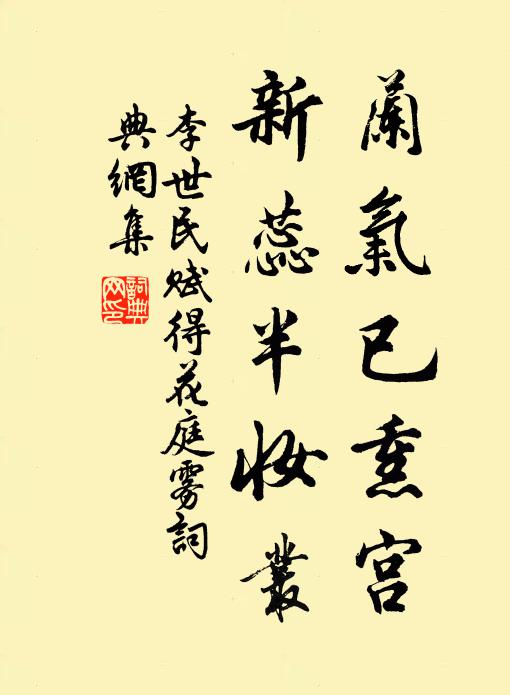 蘭氣已熏宮
新蕊半妝叢
李世民賦得花庭雾詞
典網集
詞典网印